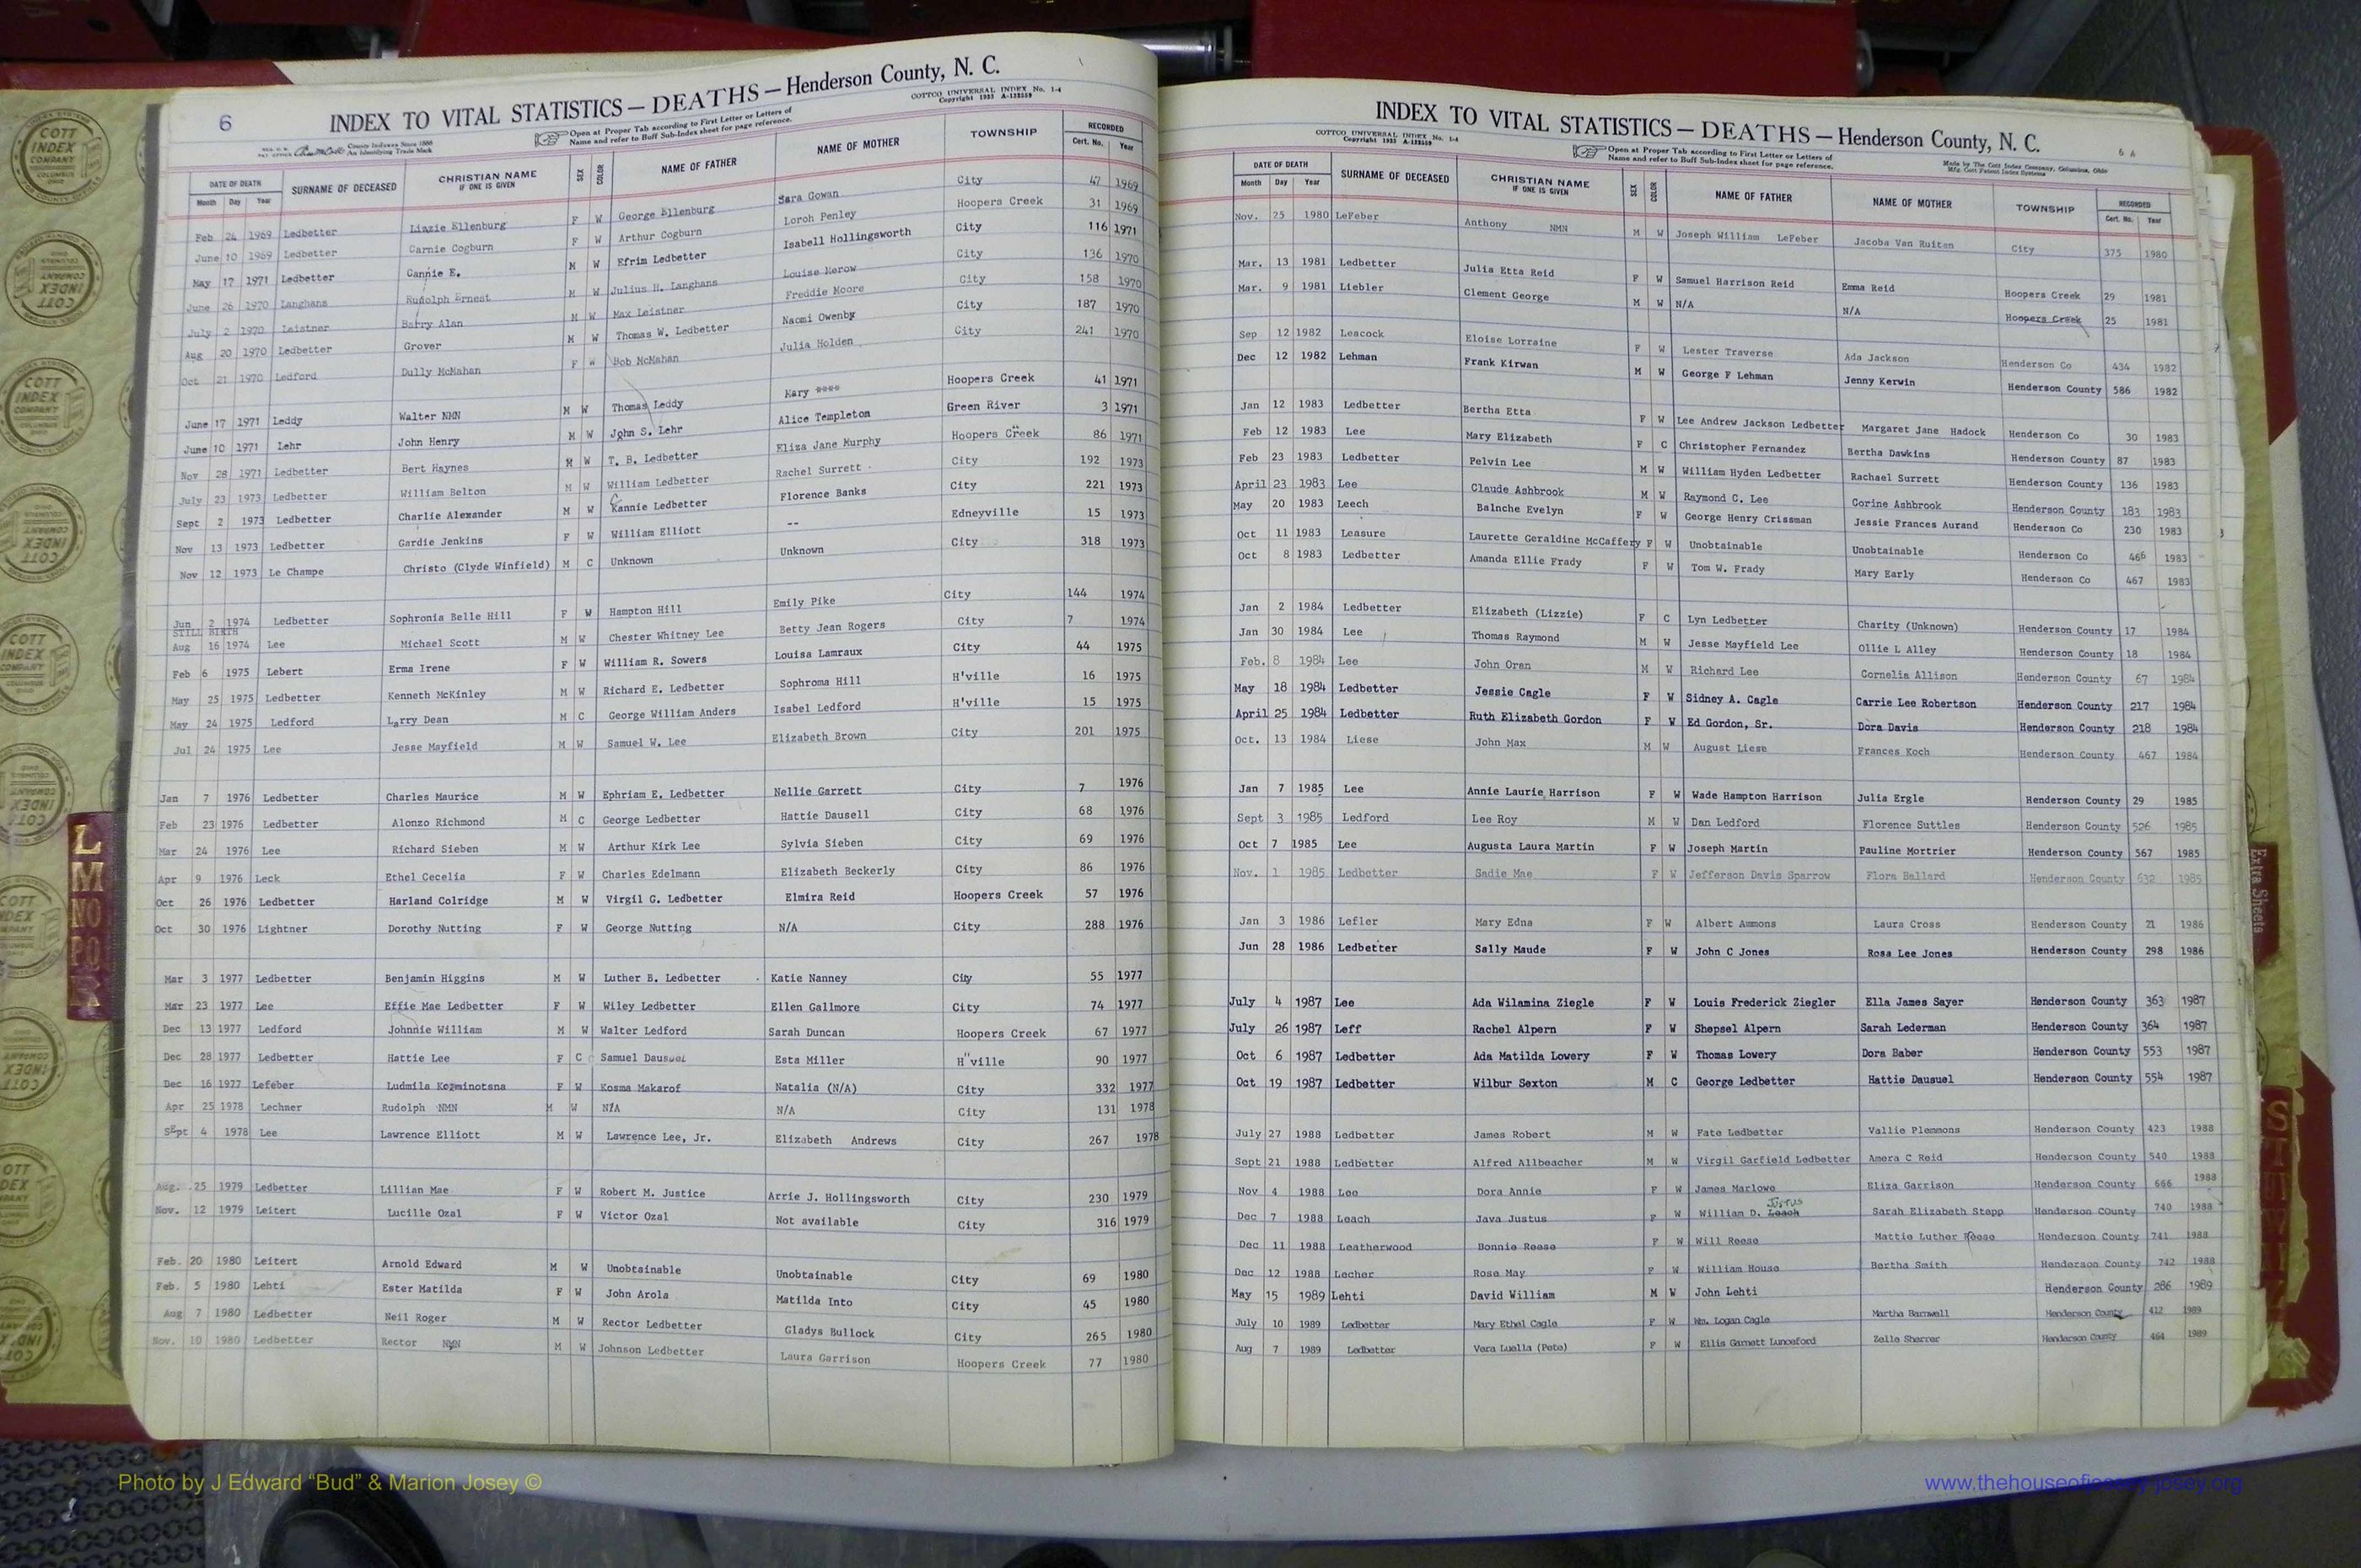 6
INDEX TO VITAL STATISTICS — DEATHS — Henderson County, N. C.
COTTCO UNIVERSAL INDEX No. 1-4
Copyright 1933 A-132559
County Indexes Since 1888
An Identifying Trade Mark
Open at Proper Tab according to First Letter or Letters of
Name and refer to Buff Sub-Index sheet for page reference.
DATE OF DEATH SURNAME OF DECEASED CHRISTIAN NAME IF ONE IS GIVEN SEX COLOR NAME OF FATHER NAME OF MOTHER TOWNSHIP RECORDED
Month Day Year Cert. No. Year
Feb 24 1969 Ledbetter Linzie Ellenburg F W George Ellenburg Sara Gowan City 47 1969
June 10 1969 Ledbetter Carnie Cogburn F W Arthur Cogburn Loroh Penley Hoopers Creek 31 1969
May 17 1971 Ledbetter Cannie E. M W Efrim Ledbetter Isabell Hollingsworth City 116 1971
June 26 1970 Langhans Rudolph Ernest M W Julius H. Langhans Louise Merow City 136 1970
July 2 1970 Leistner Barry Alan M W Max Leistner Freddie Moore City 158 1970
Aug 20 1970 Ledbetter Grover M W Thomas W. Ledbetter Naomi Owenby City 187 1970
Oct 21 1970 Ledford Dully McMahan F W Bob McMahan Julia Holden City 241 1970
June 17 1971 Leddy Walter NMN M W Thomas Leddy Mary **** Hoopers Creek 41 1971
June 10 1971 Lehr John Henry M W John S. Lehr Alice Templeton Green River 3 1971
Nov 28 1971 Ledbetter Bert Haynes M W T. B. Ledbetter Eliza Jane Murphy Hoopers Creek 86 1971
July 23 1973 Ledbetter William Belton M W William Ledbetter Rachel Surrett City 192 1973
Sept 2 1973 Ledbetter Charlie Alexander M W Kannie Ledbetter Florence Banks City 221 1973
Nov 13 1973 Ledbetter Gardie Jenkins F W William Elliott -- Edneyville 15 1973
Nov 12 1973 Le Champe Christo (Clyde Winfield) M C Unknown Unknown City 318 1973
Jun 2 1974 Ledbetter Sophronia Belle Hill F W Hampton Hill Emily Pike City 144 1974
STILL BIRTH
Aug 16 1974 Lee Michael Scott M W Chester Whitney Lee Betty Jean Rogers City 7 1974
Feb 6 1975 Lebert Erma Irene F W William R. Sowers Louisa Lamraux City 44 1975
May 25 1975 Ledbetter Kenneth McKinley M W Richard E. Ledbetter Sophroma Hill H'ville 16 1975
May 24 1975 Ledford Larry Dean M C George William Anders Isabel Ledford H'ville 15 1975
Jul 24 1975 Lee Jesse Mayfield M W Samuel W. Lee Elizabeth Brown City 201 1975
Jan 7 1976 Ledbetter Charles Maurice M W Ephriam E. Ledbetter Nellie Garrett City 7 1976
Feb 23 1976 Ledbetter Alonzo Richmond M C George Ledbetter Hattie Dausell City 68 1976
Mar 24 1976 Lee Richard Sieben M W Arthur Kirk Lee Sylvia Sieben City 69 1976
Apr 9 1976 Leck Ethel Cecelia F W Charles Edelmann Elizabeth Beckerly City 86 1976
Oct 26 1976 Ledbetter Harland Colridge M W Virgil G. Ledbetter Elmira Reid Hoopers Creek 57 1976
Oct 30 1976 Lightner Dorothy Nutting F W George Nutting N/A City 288 1976
Mar 3 1977 Ledbetter Benjamin Higgins M W Luther B. Ledbetter Katie Nanney City 55 1977
Mar 23 1977 Lee Effie Mae Ledbetter F W Wiley Ledbetter Ellen Gallmore City 74 1977
Dec 13 1977 Ledford Johnnie William M W Walter Ledford Sarah Duncan Hoopers Creek 67 1977
Dec 28 1977 Ledbetter Hattie Lee F C Samuel Dausuel Esta Miller H"ville 90 1977
Dec 16 1977 Lefeber Ludmila Kozminotsna F W Kosma Makarof Natalia (N/A) City 332 1977
Apr 25 1978 Lechner Rudolph NMN M W N/A N/A City 131 1978
SEpt 4 1978 Lee Lawrence Elliott M W Lawrence Lee, Jr. Elizabeth Andrews City 267 1978
Aug. 25 1979 Ledbetter Lillian Mae F W Robert M. Justice Arrie J. Hollingsworth City 230 1979
Nov. 12 1979 Leitert Lucille Ozal F W Victor Ozal Not available City 316 1979
Feb. 20 1980 Leitert Arnold Edward M W Unobtainable Unobtainable City 69 1980
Feb. 5 1980 Lehti Ester Matilda F W John Arola Matilda Into City 45 1980
Aug 7 1980 Ledbetter Neil Roger M W Rector Ledbetter Gladys Bullock City 265 1980
Nov. 10 1980 Ledbetter Rector NMN M W Johnson Ledbetter Laura Garrison Hoopers Creek 77 1980
INDEX TO VITAL STATISTICS — DEATHS — Henderson County, N. C.
6 A
COTTCO UNIVERSAL INDEX No. 1-4
Copyright 1933 A-132559
Open at Proper Tab according to First Letter or Letters of
Name and refer to Buff Sub-Index sheet for page reference.
Made by The Cott Index Company, Columbus, Ohio
Mfg. Cott Patent Index Systems
DATE OF DEATH SURNAME OF DECEASED CHRISTIAN NAME IF ONE IS GIVEN SEX COLOR NAME OF FATHER NAME OF MOTHER TOWNSHIP RECORDED
Month Day Year Cert. No. Year
Nov. 25 1980 LeFeber Anthony NMN M W Joseph William LeFeber Jacoba Van Ruiten City 375 1980
Mar. 13 1981 Ledbetter Julia Etta Reid F W Samuel Harrison Reid Emma Reid Hoopers Creek 29 1981
Mar. 9 1981 Liebler Clement George M W N/A N/A Hoopers Creek 25 1981
Sep 12 1982 Leacock Eloise Lorraine F W Lester Traverse Ada Jackson Henderson Co 434 1982
Dec 12 1982 Lehman Frank Kirwan M W George F Lehman Jenny Kerwin Henderson County 586 1982
Jan 12 1983 Ledbetter Bertha Etta F W Lee Andrew Jackson Ledbetter Margaret Jane Hadock Henderson Co 30 1983
Feb 12 1983 Lee Mary Elizabeth F C Christopher Fernandez Bertha Dawkins Henderson County 87 1983
Feb 23 1983 Ledbetter Pelvin Lee M W William Hyden Ledbetter Rachael Surrett Henderson County 136 1983
April 23 1983 Lee Claude Ashbrook M W Raymond C. Lee Corine Ashbrook Henderson County 183 1983
May 20 1983 Leech Balnche Evelyn F W George Henry Crissman Jessie Frances Aurand Henderson Co 230 1983
Oct 11 1983 Leasure Laurette Geraldine McCaffery F W Unobtainable Unobtainable Henderson Co 466 1983
Oct 8 1983 Ledbetter Amanda Ellie Frady F W Tom W. Frady Mary Early Henderson Co 467 1983
Jan 2 1984 Ledbetter Elizabeth (Lizzie) F C Lyn Ledbetter Charity (Unknown) Henderson County 17 1984
Jan 30 1984 Lee Thomas Raymond M W Jesse Mayfield Lee Ollie L Alley Henderson County 18 1984
Feb. 8 1984 Lee John Oren M W Richard Lee Cornelia Allison Henderson County 67 1984
May 18 1984 Ledbetter Jessie Cagle F W Sidney A. Cagle Carrie Lee Robertson Henderson County 217 1984
April 25 1984 Ledbetter Ruth Elizabeth Gordon F W Ed Gordon, Sr. Dora Davis Henderson County 218 1984
Oct. 13 1984 Liese John Max M W August Liese Frances Koch Henderson County 467 1984
Jan 7 1985 Lee Annie Laurie Harrison F W Wade Hampton Harrison Julia Ergle Henderson County 29 1985
Sept 3 1985 Ledford Lee Roy M W Dan Ledford Florence Suttles Henderson County 526 1985
Oct 7 1985 Lee Augusta Laura Martin F W Joseph Martin Pauline Mortrier Henderson County 567 1985
Nov. 1 1985 Ledbetter Sadie Mae F W Jefferson Davis Sparrow Flora Ballard Henderson County 632 1985
Jan 3 1986 Lefler Mary Edna F W Albert Ammons Laura Cross Henderson County 21 1986
Jun 28 1986 Ledbetter Sally Maude F W John C Jones Rosa Lee Jones Henderson County 298 1986
July 4 1987 Lee Ada Wilamina Ziegle F W Louis Frederick Ziegler Ella James Sayer Henderson County 363 1987
July 26 1987 Leff Rachel Alpern F W Shepsel Alpern Sarah Lederman Henderson County 364 1987
Oct 6 1987 Ledbetter Ada Matilda Lowery F W Thomas Lowery Dora Baber Henderson County 553 1987
Oct 19 1987 Ledbetter Wilbur Sexton M C George Ledbetter Hattie Dausuel Henderson County 554 1987
July 27 1988 Ledbetter James Robert M W Fate Ledbetter Vallie Plemmons Henderson County 423 1988
Sept 21 1988 Ledbetter Alfred Allbeacher M W Virgil Garfield Ledbetter Amera C Reid Henderson County 540 1988
Nov 4 1988 Lee Dora Annie F W James Marlowe Eliza Garrison Henderson County 666 1988
Justus
Dec 7 1988 Leach Java Justus F W William D. Leach Sarah Elizabeth Stepp Henderson COunty 740 1988
Dec 11 1988 Leatherwood Bonnie Reese F W Will Reese Mattie Luther Reese Henderson County 741 1988
Dec 12 1988 Lecher Rose May F W William House Bertha Smith Henderson County 742 1988
May 15 1989 Lehti David William M W John Lehti Henderson County 286 1989
July 10 1989 Ledbetter Mary Ethel Cagle F W Wm. Logan Cagle Martha Barnwell Henderson County 412 1989
Aug 7 1989 Ledbetter Vera Luella (Pete) F W Ellis Garnett Lunceford Zella Sherrer Henderson County 464 1989
L
M
NO
PQ
R
Extra Sheets
COTT INDEX COMPANY COLUMBUS OHIO
Photo by J Edward “Bud” & Marion Josey ©
www.thehouseofjossey-josey.org